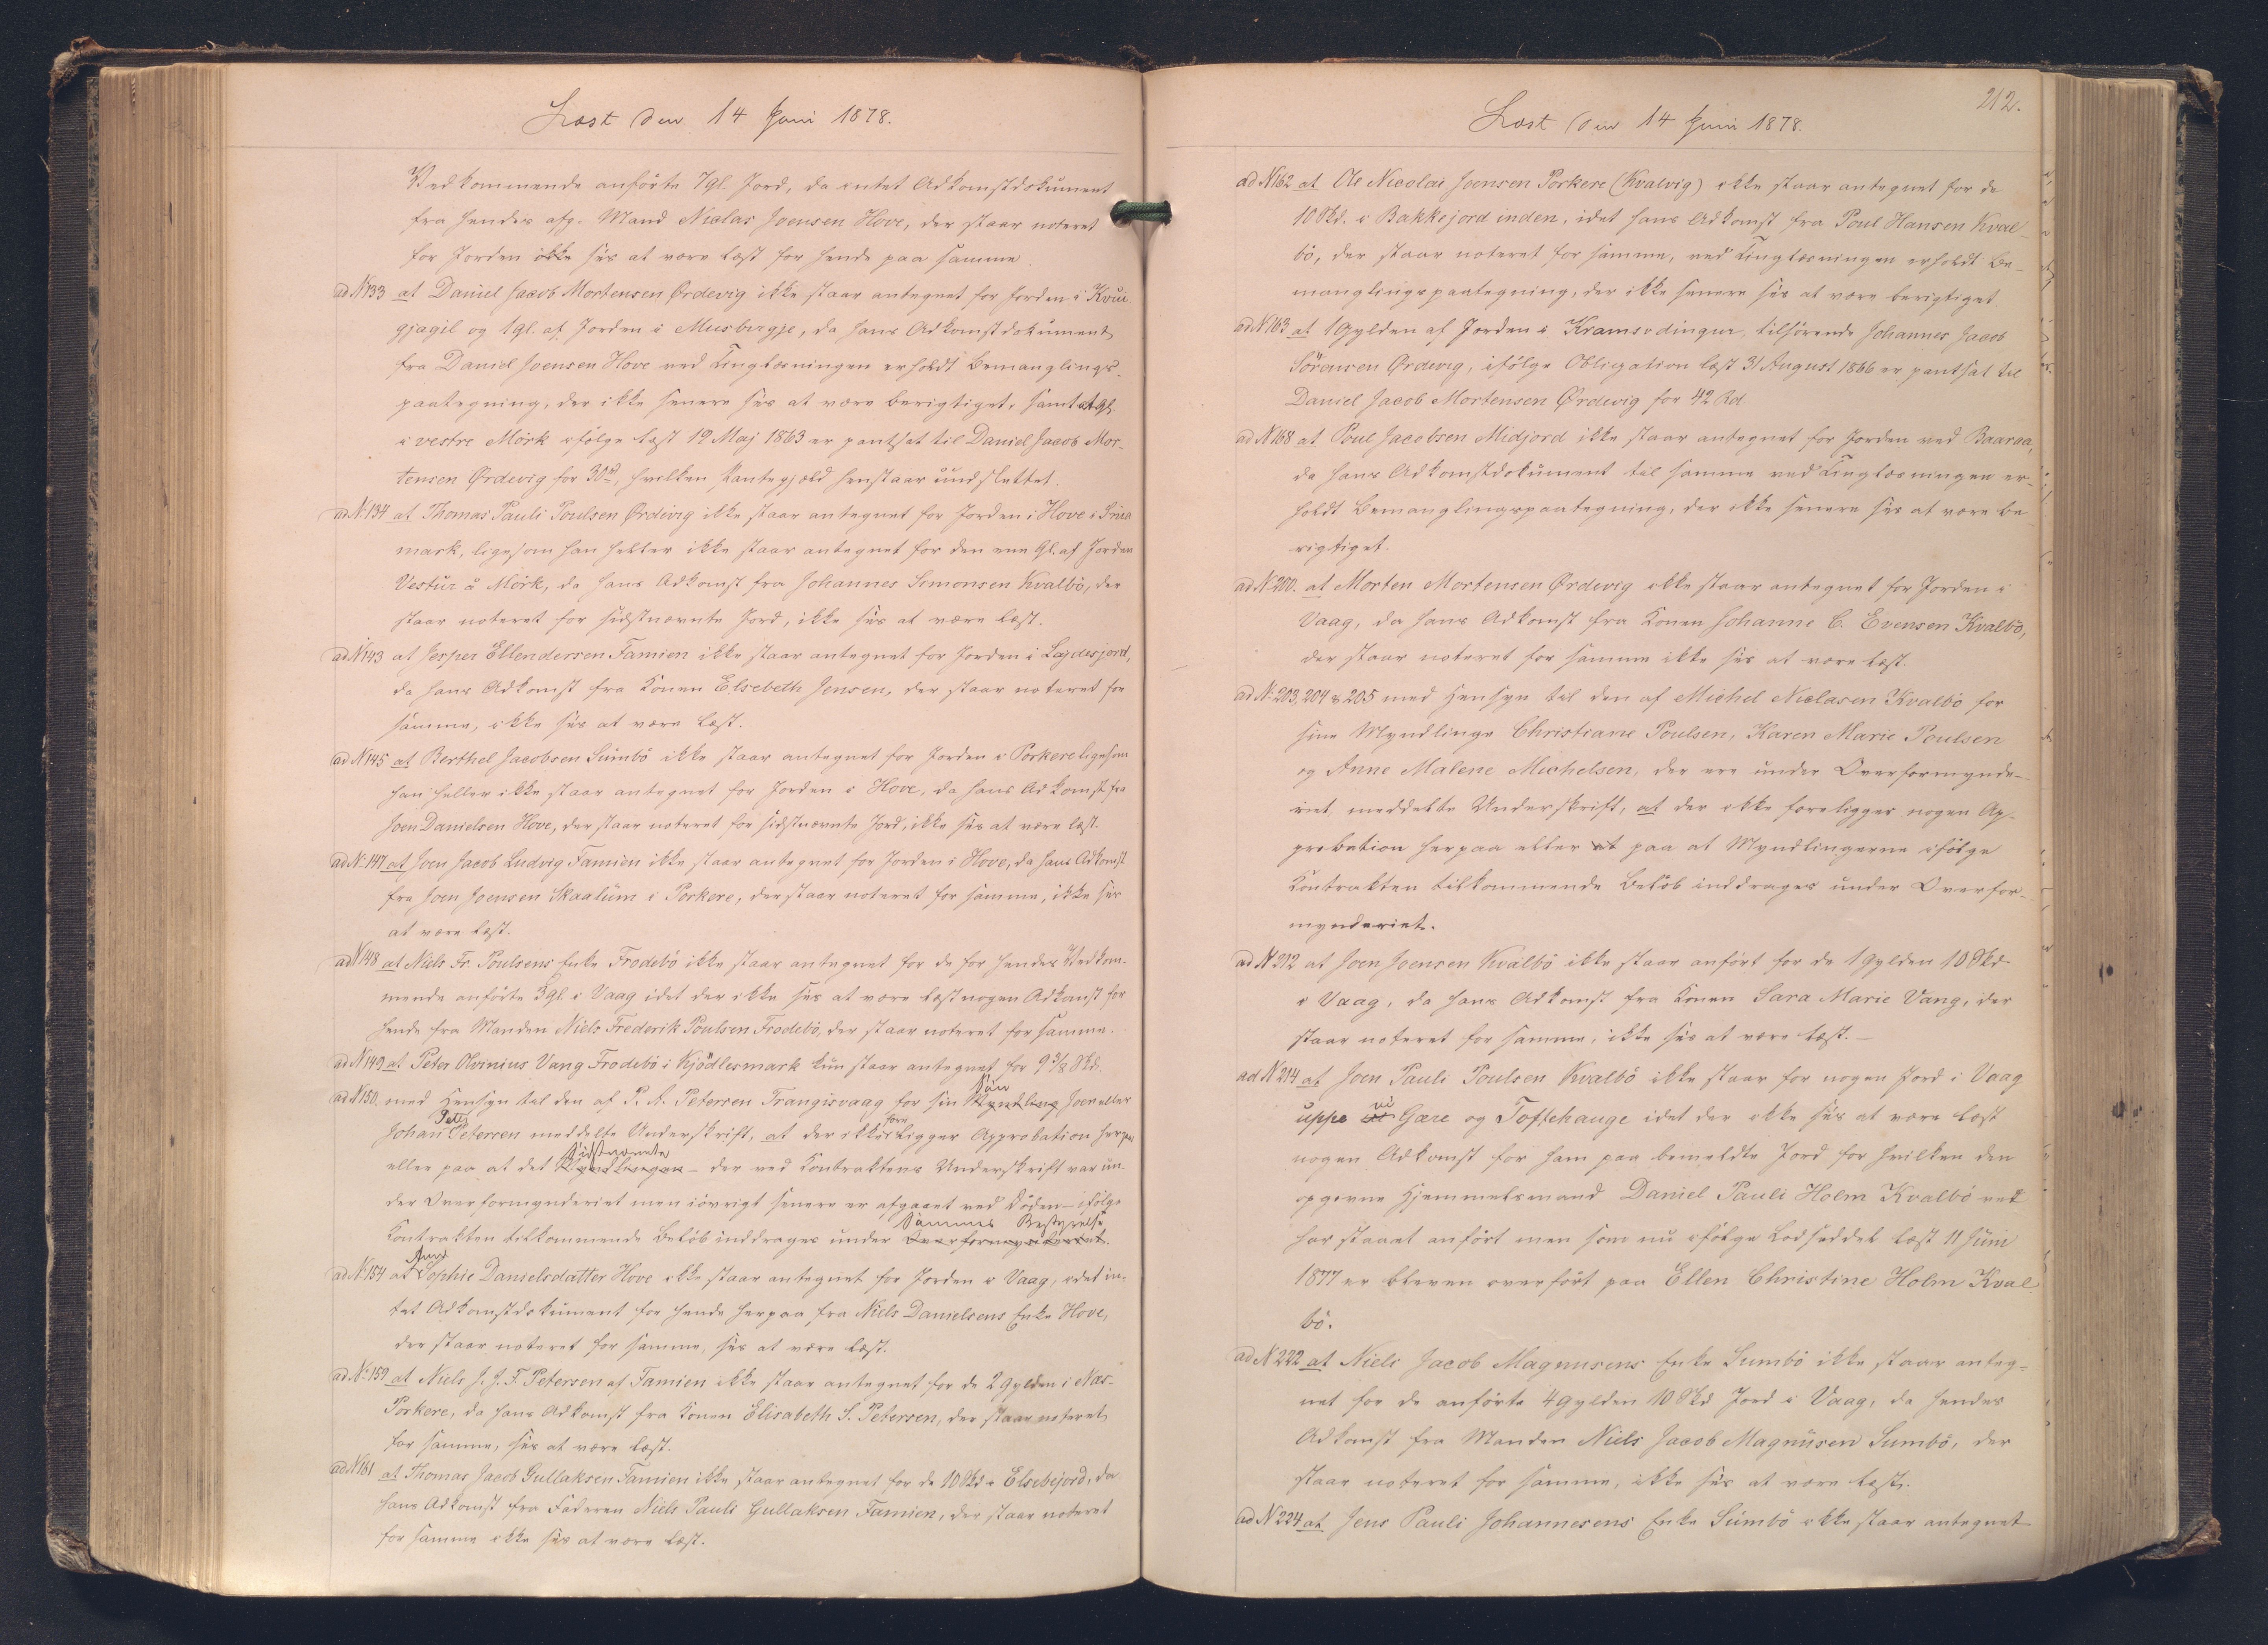 Læst den 14 Juni 1878.
Vedkommende anförte 7gl. Jord, da intet Adkomstdokument
fra hendes afg. Mand Niclas Joensen Hove, der staar noteret
for Jorden ikke ses at være læst for hende paa samme.
ad N 133 at Daniel Jacob Mortensen Ördevig ikke staar antegnet for Jorden i Kvui
gjagil og 1gl. af Jorden i Musbirgje, da hans Adkomstdokument
fra Daniel Joensen Hove ved Tinglæsningen erholdt Bemanglings-
paategning, der ikke senere ses at være berigtiget, samt at 1gl.
i vestre Mörk ifölge læst 19 Maj 1863 er pantsat til Daniel Jacob Mor-
tensen Ördevig for 30rd, hvilken Pantegjæld henstaar uudslettet.
ad N. 134 at Thomas Pauli Poulsen Ördevig ikke staar antegnet for Jorden i Hove i
mark, ligesom han heller ikke staar antegnet for den ene Gl. af Jorden
Vestur å Mörk, da hans Adkomst fra Johannes Simonsen Kvalbö, der
staar noteret for sidstnævnte Jord, ikke ses at være læst.
ad N 143 at Jesper Ellendersen Famien ikke staar antegnet for Jorden i Lagdesjord,
da hans Adkomst fra Konen Elsebeth Jensen, der staar noteret for
samme, ikke ses at være læst.
ad N 145 at Berthel Jacobsen Sumbö ikke staar antegnet for Jorden i Porkere ligesom
han heller ikke staar antegnet for Jorden i Hove, da hans Adkomst fra
Joen Danielsen Hove, der staar noteret for sidstnævnte Jord, ikke ses at være læst.
ad N. 147 at Joen Jacob Ludvig Famien ikke staar antegnet for Jorden i Hove, da hans Adkomst
fra Joen Joensen Skaalum i Porkere, der staar noteret for samme, ikke ses
at være læst.
ad N 148 at Niels Fr. Poulsens Enke Frodebö ikke staar antegnet for de for hendes Vedkom-
mende anförte 3gl. i Vaag idet der ikke ses at være læst nogen Adkomst for
hende fra Manden Niels Frederik Poulsen Frodebö, der staar noteret for samme.
ad N 149 at Peter Olvinius Vang Frodebö i Kjödlesmark kun staar antegnet for 9 3/8 Skd.
ad N 150. med Hensyn til den af P. A. Petersen Trangisvaag for sin Myndling Sön Joen eller
Johan Petz Petersen meddelte Underskrift, at der ikke foreligger Approbation herpaa
eller paa at det Myndlingen Sidstnævnte – der ved Kontraktens Underskrift var un-
der Overformynderiet men iövrigt senere er afgaaet ved Döden – ifölge
Kontrakten tilkommende Belöb inddrages under Overformynderiet. Sammes Bestyrelse
ad N. 154 at Anne Sophie Danielsdatter Hove ikke staar antegnet for Jorden i Vaag, idet in-
tet Adkomstdokument for hende herpaa fra Niels Danielsens Enke Hove,
der staar noteret for samme, ses at være læst.
ad N: 159 at Niels J. J. F. Petersen af Famien ikke staar antegnet for de 2 Gylden i Næs-
Porkere, da hans Adkomst fra Konen Elisabeth S. Petersen, der staar noteret
for samme, ses at være læst.
ad N 161 at Thomas Jacob Gullaksen Famien ikke staar antegnet for de 10 Skd i Elsebejord, da
hans Adkomst fra Faderen Niels Pauli Gullaksen Famien, der staar noteret
for samme ikke ses at være læst.
212.
Læst den 14 Juni 1878.
ad N 162 at Ole Nicolai Joensen Porkere (Kvalvig) ikke staar antegnet for de
10 Skd. i Bakkejord inden, idet hans Adkomst fra Poul Hansen Kval-
bö, der staar noteret for samme, ved Tinglæsningen erholdt Be-
manglingspaategning, der ikke senere ses at være berigtiget.
ad N 163 at 1 Gylden af Jorden i Kramsvdingur, tilhörende Johannes Jacob
Sörensen Ördevig, ifölge Obligation læst 31 August 1866 er pantsat til
Daniel Jacob Mortensen Ördevig for 42 Rd.
ad N 168 at Poul Jacobsen Midjord ikke staar antegnet for Jorden ved Baaraa,
da hans Adkomstdokument til samme ved Tinglæsningen er-
holdt Bemanglingspaategning, der ikke senere ses at være be
rigtiget.
ad N. 200. at Morten Mortensen Ördevig ikke staar antegnet for Jorden i
Vaag, da hans Adkomst fra Konen Johanne C. Evensen Kvalbö,
der staar noteret for samme ikke ses at være læst.
ad N. 203, 204 & 205 med Hensyn til den af Michel Niclasen Kvalbö for
sine Myndlinge Christiane Poulsen, Karen Marie Poulsen
og Anne Malene Michelsen, der ere under Overformynde-
riet, meddelte Underskrift, at der ikke foreligger nogen Ap-
probation herpaa eller at paa at Myndlingerne ifölge
Kontrakten tilkommende Belöb inddrages under Overfor-
mynderiet.
ad N 212 at Joen Joensen Kvalbö ikke staar anfört for de 1 Gylden 10 Skd
i Vaag, da hans Adkomst fra Konen Sara Marie Vang, der
staar noteret for samme, ikke ses at være læst. –
ad N 214 at Joen Pauli Poulsen Kvalbö ikke staar for nogen Jord i Vaag
uppe vi Gære og Toftehauge idet der ikke ses at være læst
nogen Adkomst for ham paa bemeldte Jord for hvilken den
opgivne Hjemmelsmand Daniel Pauli Holm Kvalbö vel
har staaet anfört men som nu ifölge Lodseddel læst 11 Juni
1877 er bleven overfört paa Ellen Christine Holm Kval
bö.
ad N 222 at Niels Jacob Magnusens Enke Sumbö ikke staar anteg-
net for de anförte 4 Gylden 10 Skd Jord i Vaag, da hendes
Adkomst fra Manden Niels Jacob Magnusen Sumbö, der
staar noteret for samme, ikke ses at være læst.
ad N 224 at Jens Pauli Johannesens Enke Sumbö ikke staar antegnet